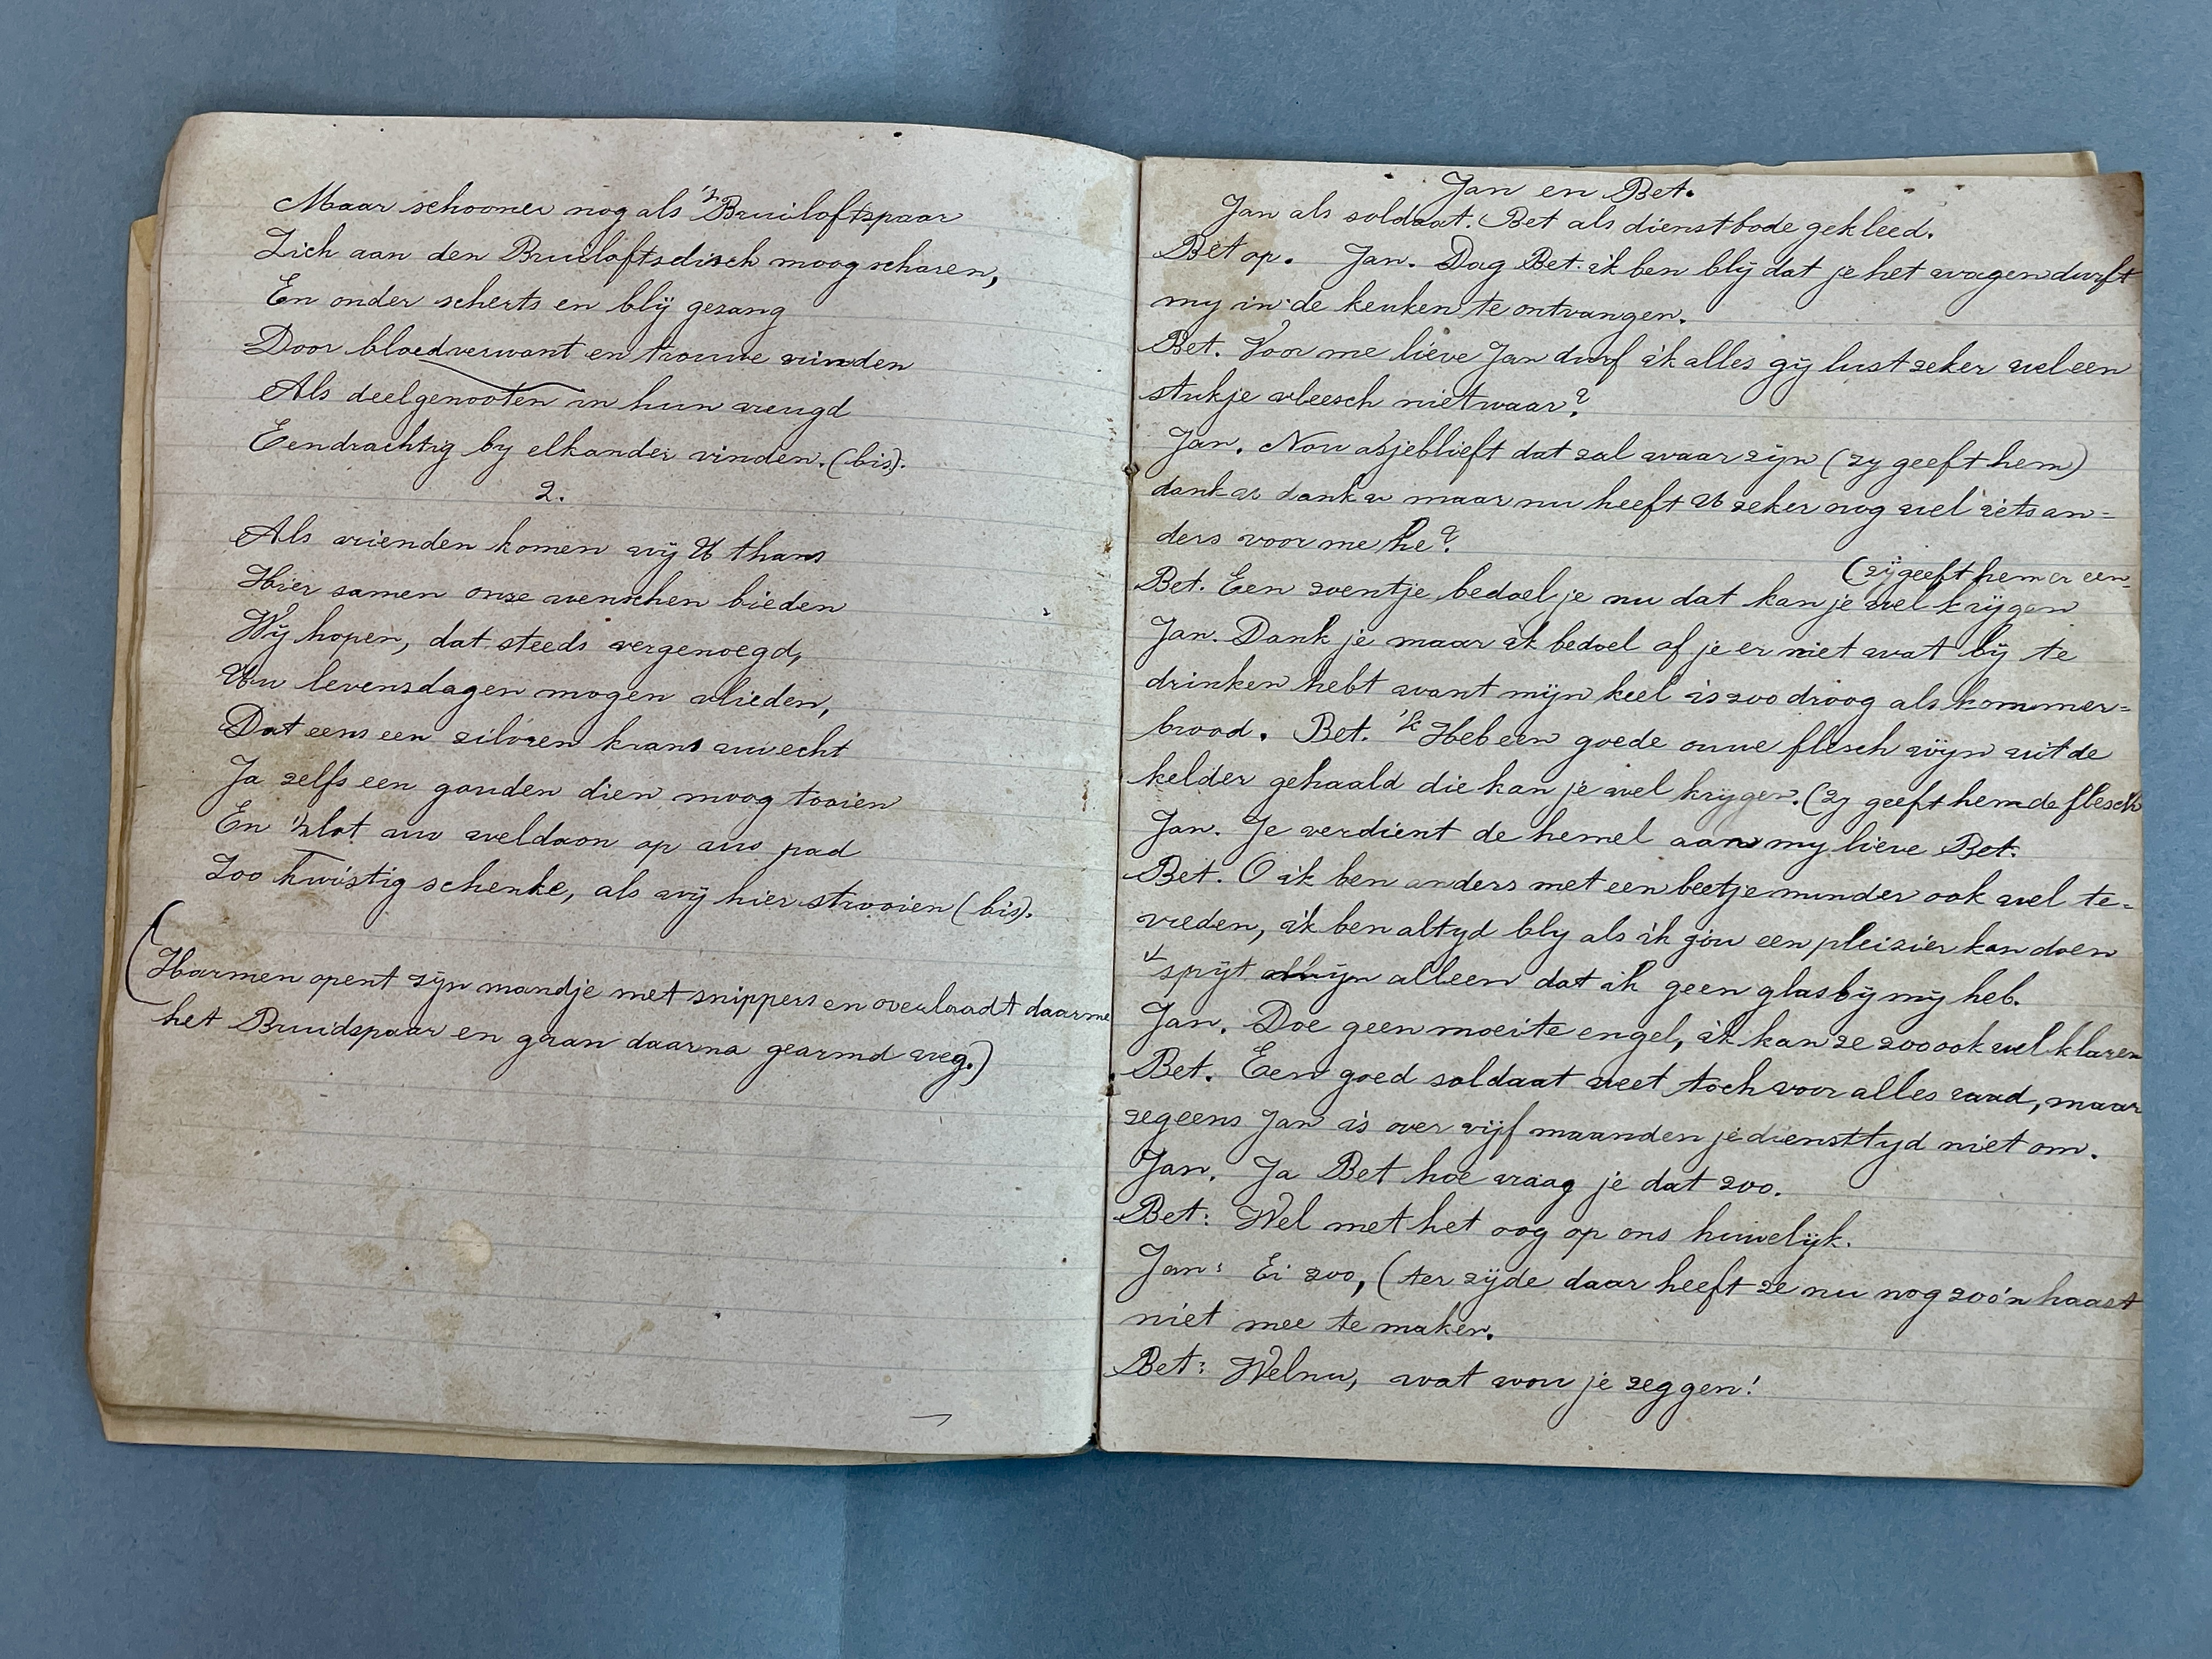 Maar schooner nog als 't Bruiloftspaar
Zich aan den Bruiloftsdisch moog scharen,
En onder scherts en blij gezang
Door bloedverwant en trouwe vrinden
Als deelgenooten in hun vreugd
Eendrachtig by elkander vinden. (bis).
2.
Als vrienden komen wij U thans
Hier samen onze wenschen bieden
Wij hopen, dat steeds vergenoegd,
Uw levensdagen mogen vlieden,
Dat eens een zilvren krans uw echt
Ja zelfs een gouden dien moog tooien
En 't lot uw weldaon op uw pad
Zoo kwistig schenke, als wij hier strooien (bis).
(Harmen opent zijn mandje met snippers en overlaadt daarme
het Bruidspaar en gaan daarna gearmd weg.)
Jan en Bet.
Jan als soldaat. Bet als dienstbode gekleed.
Bet op. Jan. Dag Bet. ik ben blij dat je het wagen durft
my in de keuken te ontvangen.
Bet. Voor me lieve Jan durf ik alles gij lust zeker wel een
stukje vleesch niet waar?
Jan. Nou asjeblieft dat zal waar zijn (zy geeft hem)
dank u dank u maar nu heeft U zeker nog wel iets an=
ders voor me he?
(zij geeft hem er een
Bet. Een zoentje bedoel je nu dat kan je wel krijgen
Jan. Dank je maar ik bedoel of je er niet wat bij te
drinken hebt want mijn keel is zoo droog als kommer=
brood. Bet. 'k Heb een goede ouwe flesch wijn uit de
kelder gehaald die kan je wel krygen. (zy geeft hem de flesch
Jan. Je verdient de hemel aan my lieve Bet.
Bet. O ik ben anders met een beetje minder ook wel te=
vreden, ik ben altyd bly als ik jou een pleizier kan doen
't spijt mijn alleen dat ik geen glas bij mij heb.
Jan. Doe geen moeite engel, ik kan ze zoo ook wel klaren
Bet. Een goed soldaat weet toch voor alles raad, maar
zeg eens Jan is over vijf maanden je diensttyd niet om.
Jan. Ja Bet hoe vraag je dat zoo.
Bet: Wel met het oog op ons huwelijk.
Jan: Ei zoo, (ter zijde daar heeft ze nu nog zoo'n haast
niet mee te maken.
Bet: Welnu, wat wou je zeggen!